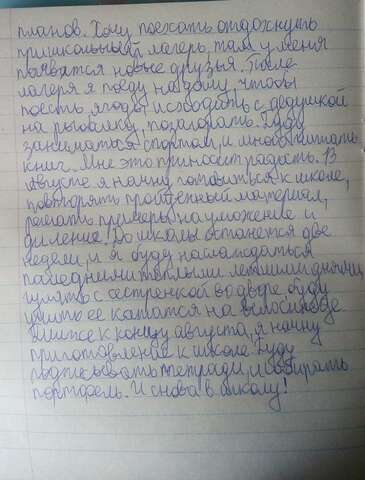 планов. Хочу поехать отдохнуть
пришкольный лагерь, там у меня
появятся новые друзья. После
лагеря я поеду на дачу, чтобы
поесть ягоды и сходить с дедушкой
на рыбалку, позагорать. Буду
заниматься спортом, и много читать
книг. Мне это приносит радость. В
августе я начну готовиться к школе,
повторять пройденный материал,
решать примеры на умножение и
диление. До школы останется две
недели, и я буду наслаждаться
последними тёплыми летними днями,
гулять с сестренкой во дворе, буду
учить её катается на велосипеде
к концу августа, я начну
приготовление к школе. Буду
подписывать тетради, и собирать
портфель. И снова в школу!